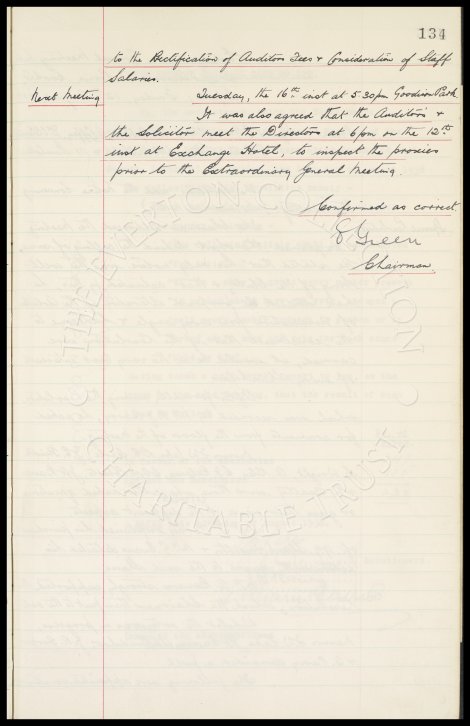 134
to the Rectification of Auditors Fees & Consideration of Staff
Salaries.
Next Meeting
Tuesday, the 16th inst at 5.30pm Goodison Park
It was also agreed that the Auditors &
the Solicitor meet the Directors at 6pm on the 12th
inst at Exchange Hotel, to inspect the proxies
prior to the Extraordinary General Meeting.
Confirmed as correct.
Green
Chairman.
THE EVERTON COLLECTION
CHARITABLE TRUST